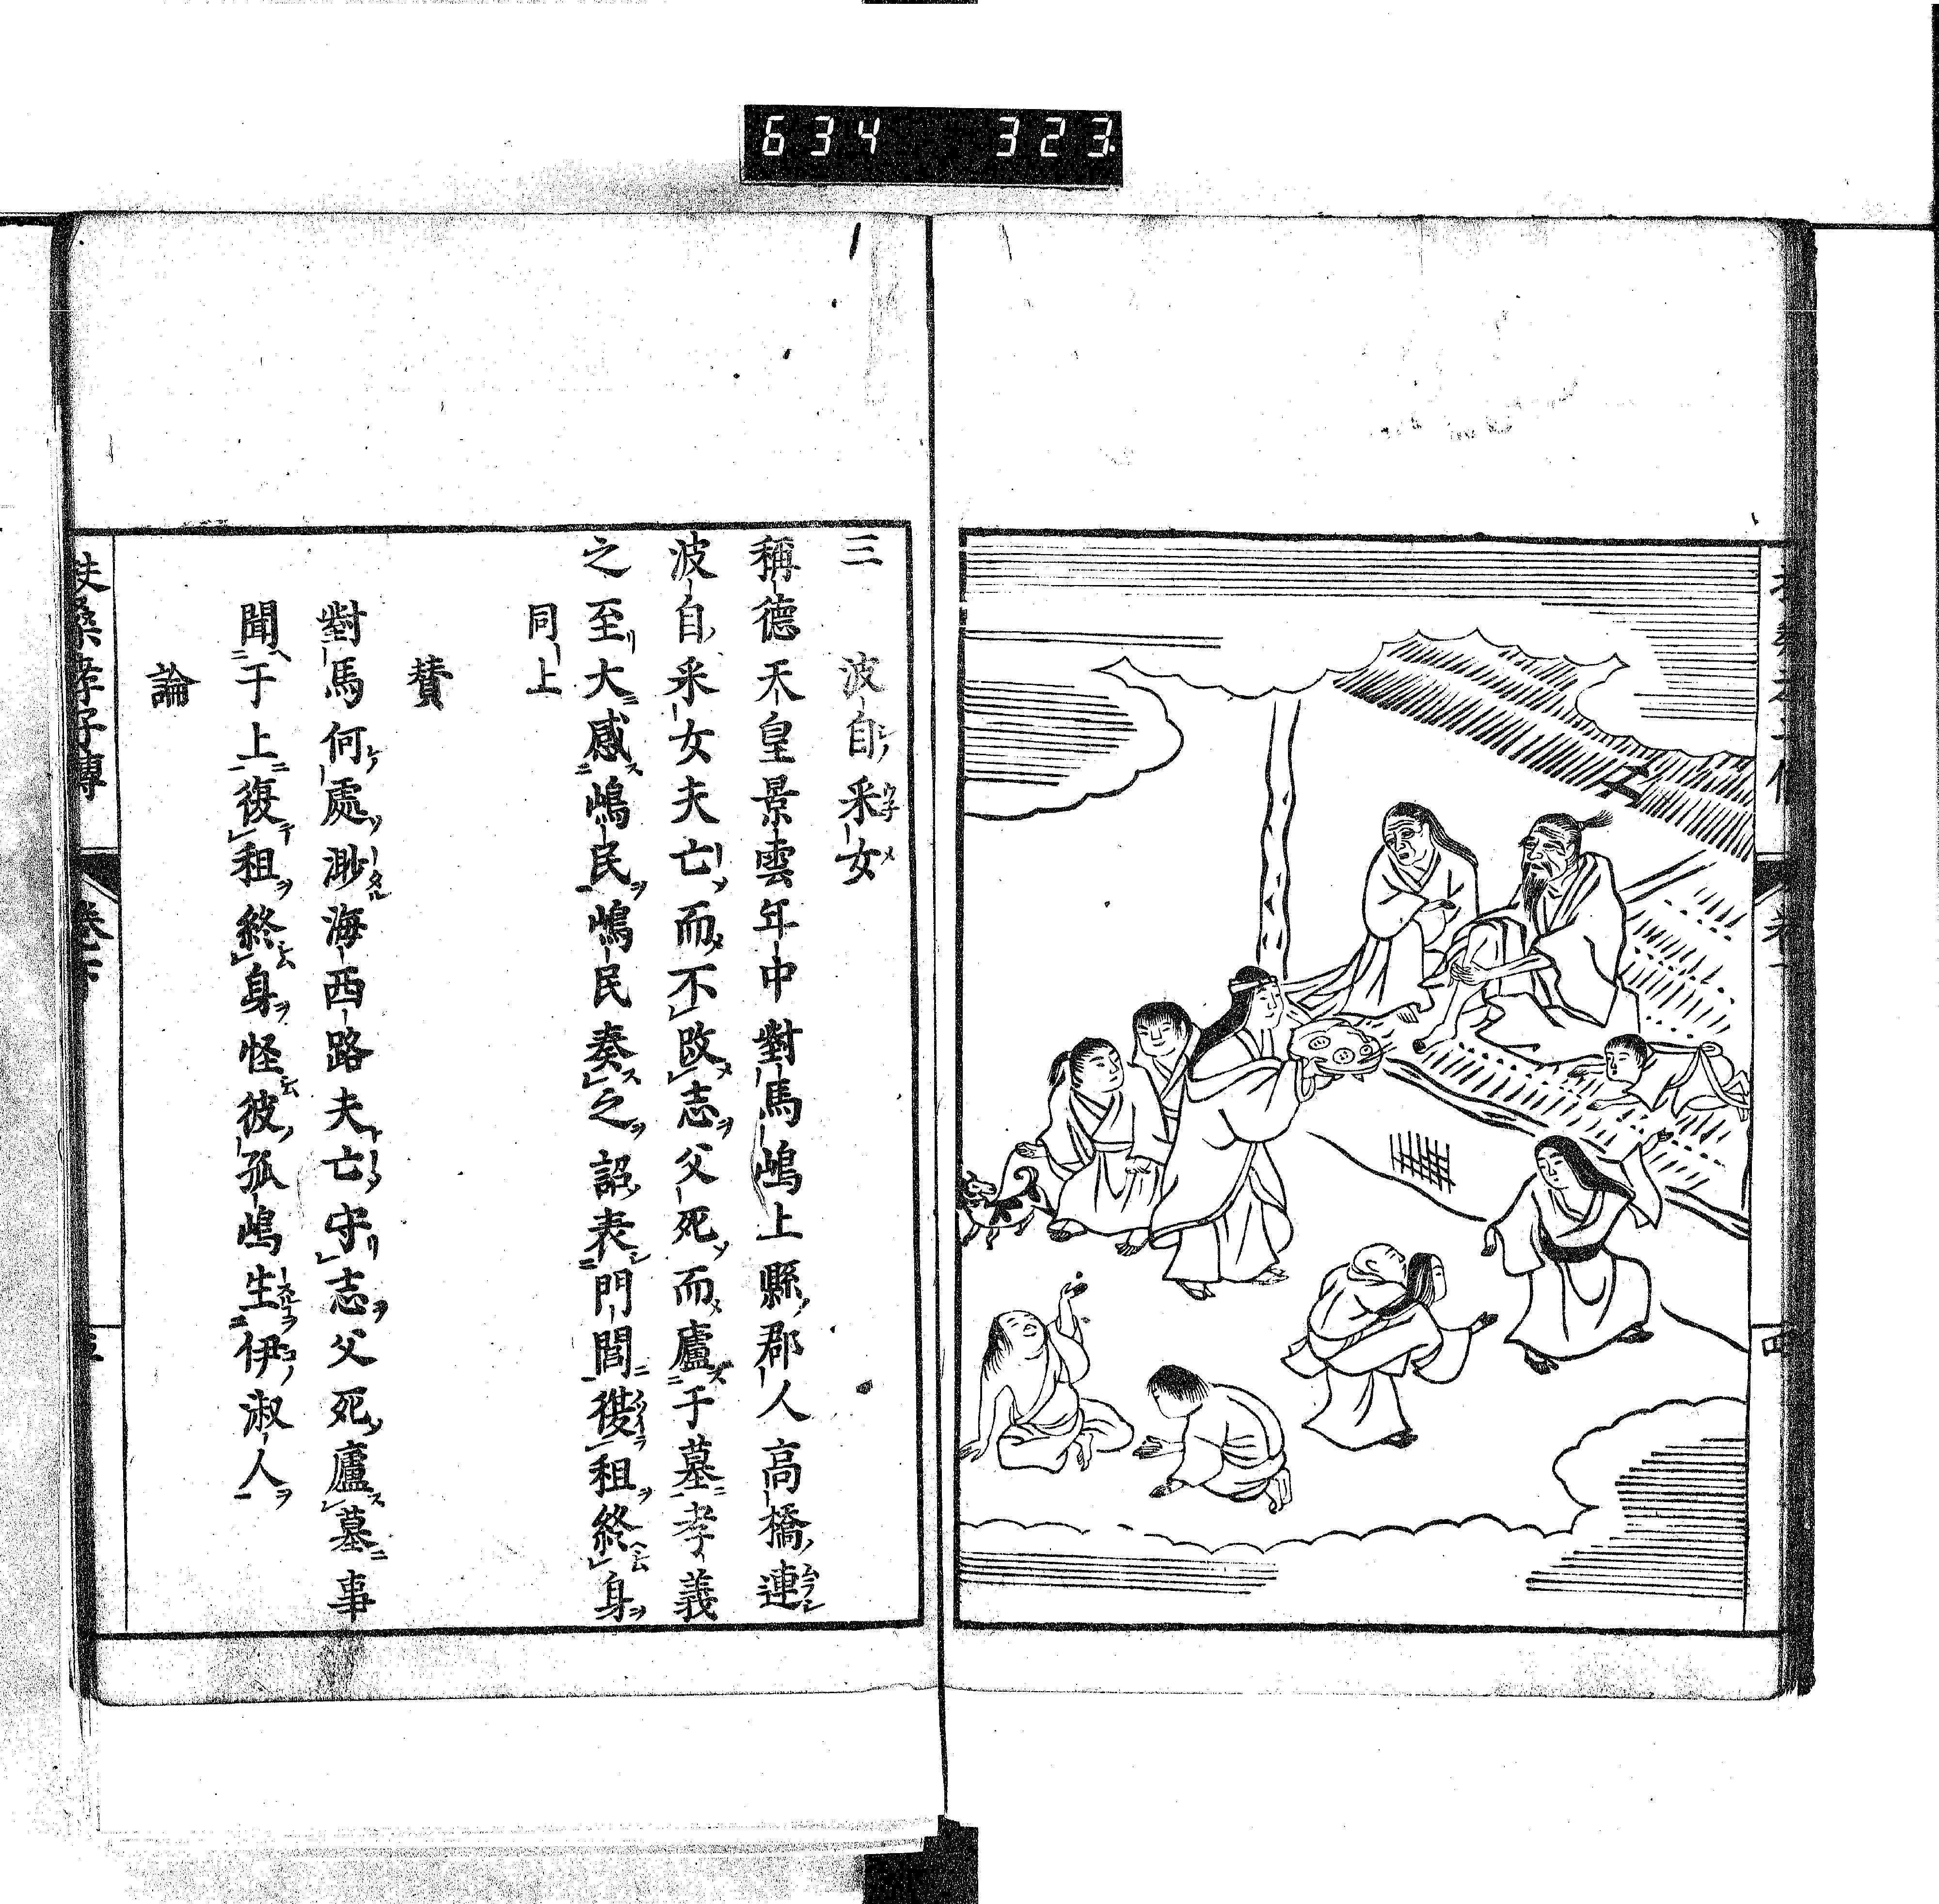 634 323
三 波自采女
稱德天皇景雲年中對馬嶋上縣郡人高橋連
波自采女夫亡而不改志父死而廬于墓孝義
之至大感嶋民嶋民奏之詔表門閭復租終身
同上
贊
對馬何處渺海西路夫亡守志父死廬墓事
聞于上復租終身怪彼孤嶋生伊淑人
論
扶桑孝子傳